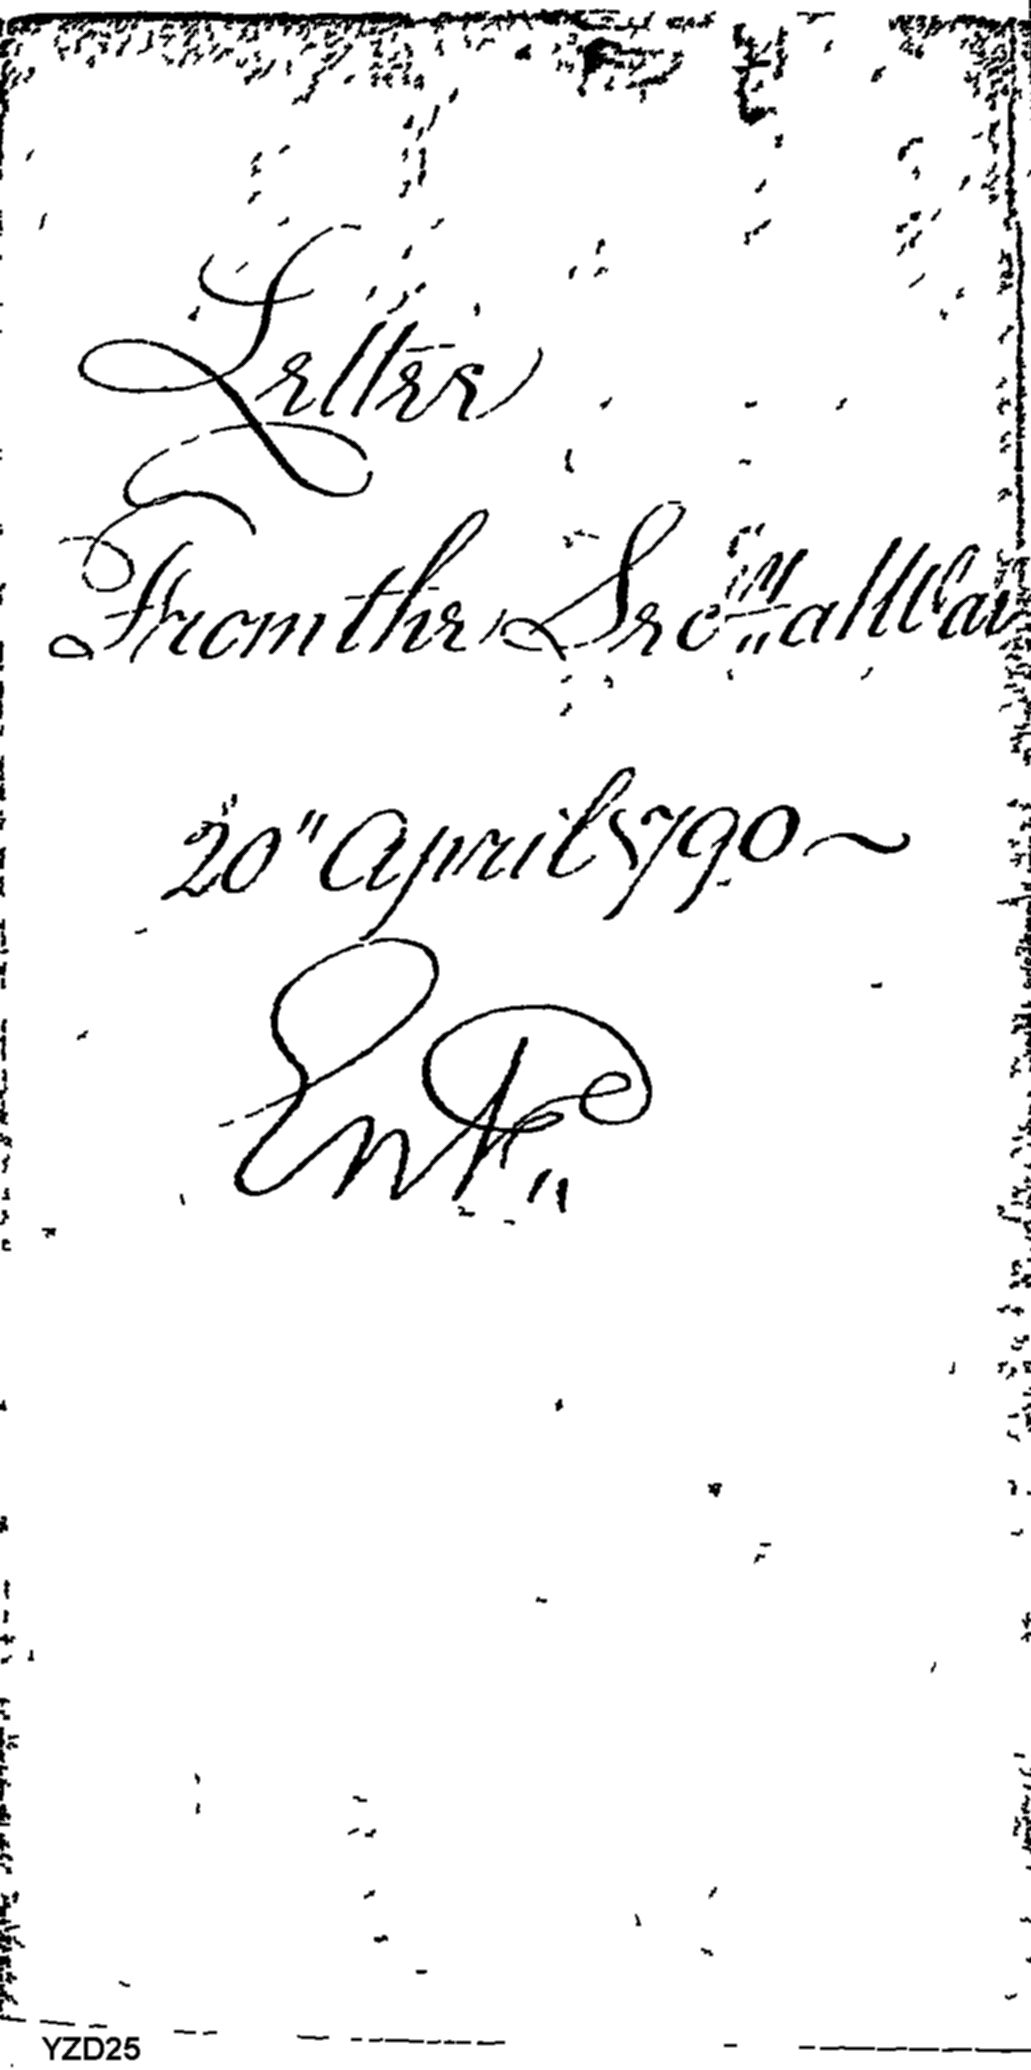 Letter
From the Secry at War
20" April 1790~
Ent"
YZD25